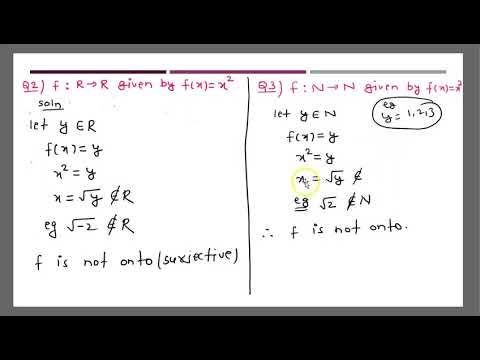 Q2) f : R→R given by f(x)=x²
soln
let y ∈ R
f(x) = y
x² = y
x = √y ∉ R
eg √-2 ∉ R
f is not onto (surjective)
Q3) f : N→N given by f(x)=x²
eg
y = 1,2,3
let y ∈ N
f(x) = y
x² = y
x = √y ∉
eg √2 ∉ N
∴ f is not onto.